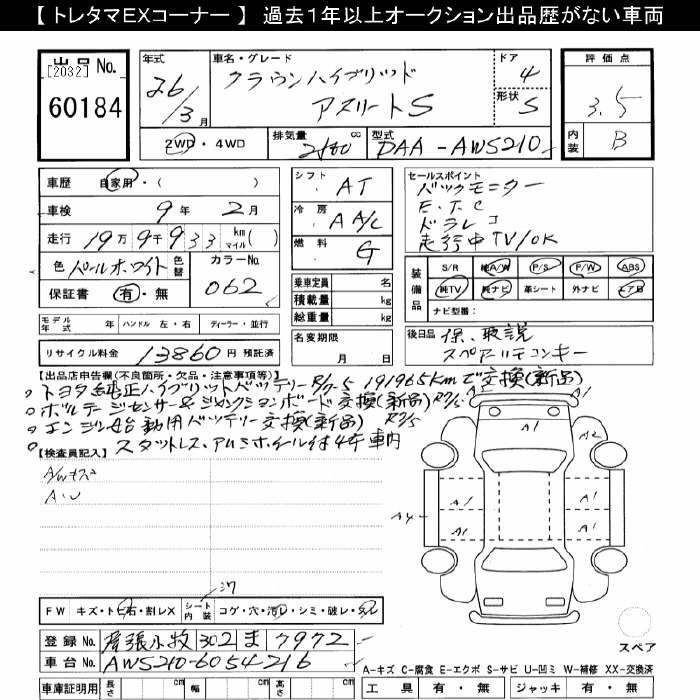 【 トレタマEXコーナー 】 過去1年以上オークション出品歴がない車両
出品No.
[2032]
60184
年式
26/3月
車名・グレード
クラウンハイブリッド
アスリートS
ドア
4
形状
S
評価点
3.5
内装
B
2WD・4WD
排気量
2500 cc
型式
DAA-AWS210
車歴 自家用・( )
車検 9年 2月
走行 19万9千933 km マイル( )
色 パールホワイト 色替
カラーNo.
062
保証書 有・無
シフト
AT
冷房
AA/C
燃料
G
セールスポイント
バックモニター
E.T.C
ドラレコ
走行中TV/OK
装備品
S/R 純A/W P/S P/W ABS
純TV 純ナビ 革シート 外ナビ エアB
ナビ型番:
モデル年式 年 ハンドル 左・右 ディーラー・並行
乗車定員 名
積載量 kg
総重量 kg
名変期限
月 日
後日品
保、取説
スペアリモコンキー
リサイクル料金 13860円 預託済
【出品店申告欄(不良箇所・欠品・注意事項等)】
トヨタ純正ハイブリットバッテリー R/7-5 191965kmで交換(新品)
ボルテージセンサー&ジャンクションボード交換(新品) R7/5
エンジン始動用バッテリー交換(新品) R7/5
スタットレス、アルミホイール付4本車内
【検査員記入】
A/Wキズ2
A・U
A1
A1
A2
A1
A1
A1
A1
A4
FW キズ・トビ石・割レX シート内装 コゲ・穴・汚レ・シミ・破レ・スレ
登録No. 尾張小牧 302 ま 7972
車台No. AWS210-6054216
車庫証明用 長さ cm 幅 cm 高さ cm
スペア
A-キズ C-腐食 E-エクボ S-サビ U-凹ミ W-補修 XX-交換済
工具 有・無 ジャッキ 有・無